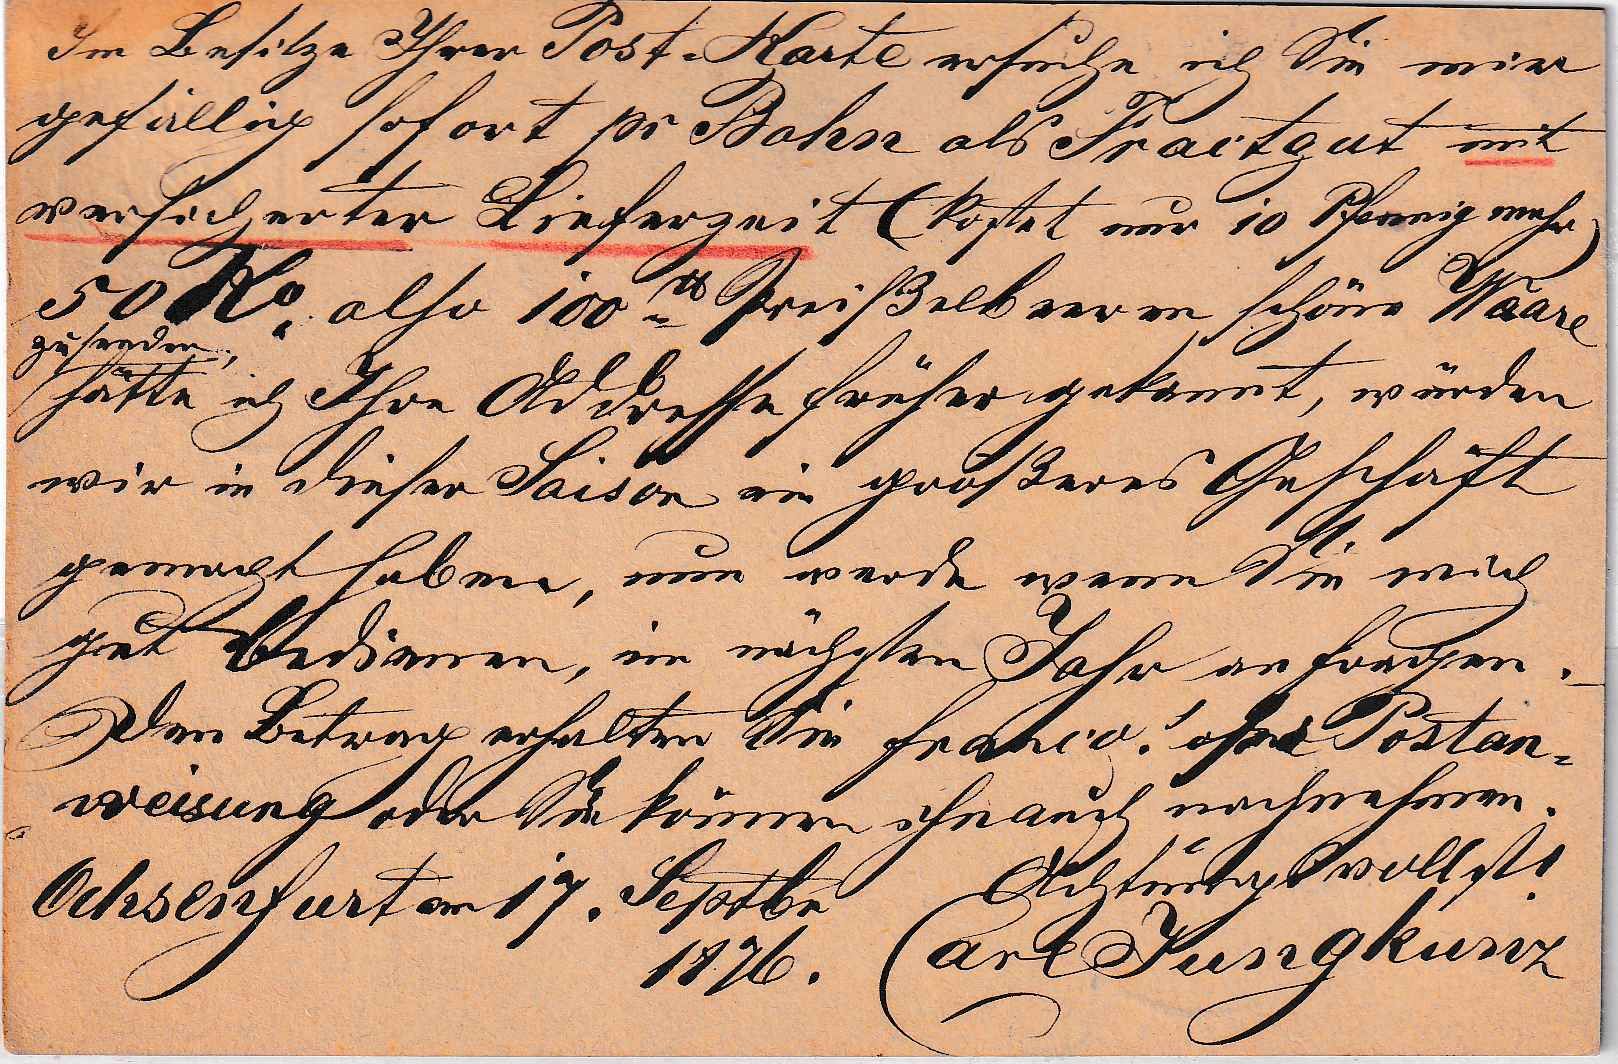 Im Besitze Ihrer Post-Karte ersuche ich Sie mir
gefällig sofort pr Bahn als Frachtgut mit
versicherter Lieferzeit (kostet nur 10 Pfennig mehr)
50 Ko. also 100 ℔ Preißelbeeren schöne Waare
zusenden,
hätte ich Ihre Addresse früher gekannt, würden
wir in dieser Saison ein größeres Geschäft
gemacht haben, nun werde wenn Sie mich
gut bedienen, im nächsten Jahr anfragen.
Den Betrag erhalten Sie franco! Postan-
weisung oder Sie können ihn auch nachnehmen.
Ochsenfurt am 17. Septbr
1876.
Achtungsvollst!
Carl Jungkunz